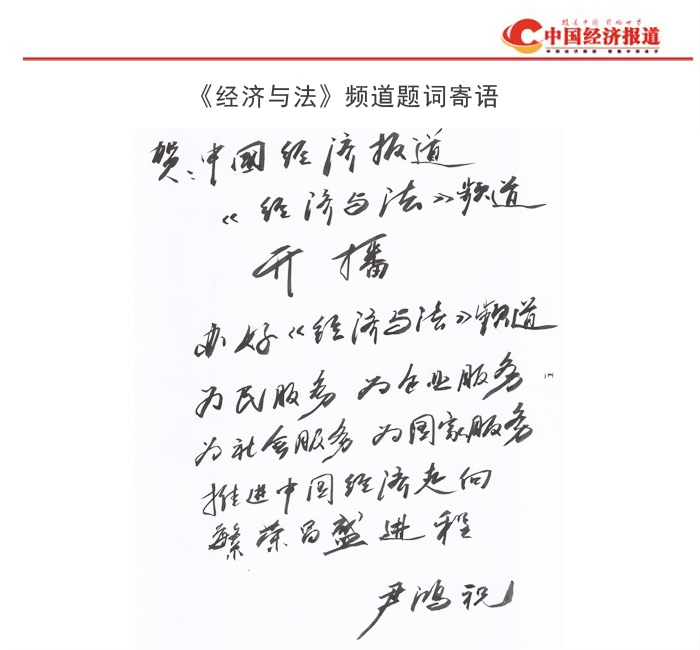 中国经济报道
《经济与法》频道题词寄语
贺:中國经济报道
《经济与法》频道
开播
办好《经济与法》频道
为民服务 为企业服务
为社会服务 为国家服务
推进中国经济走向
繁荣昌盛进程
尹鸿祝